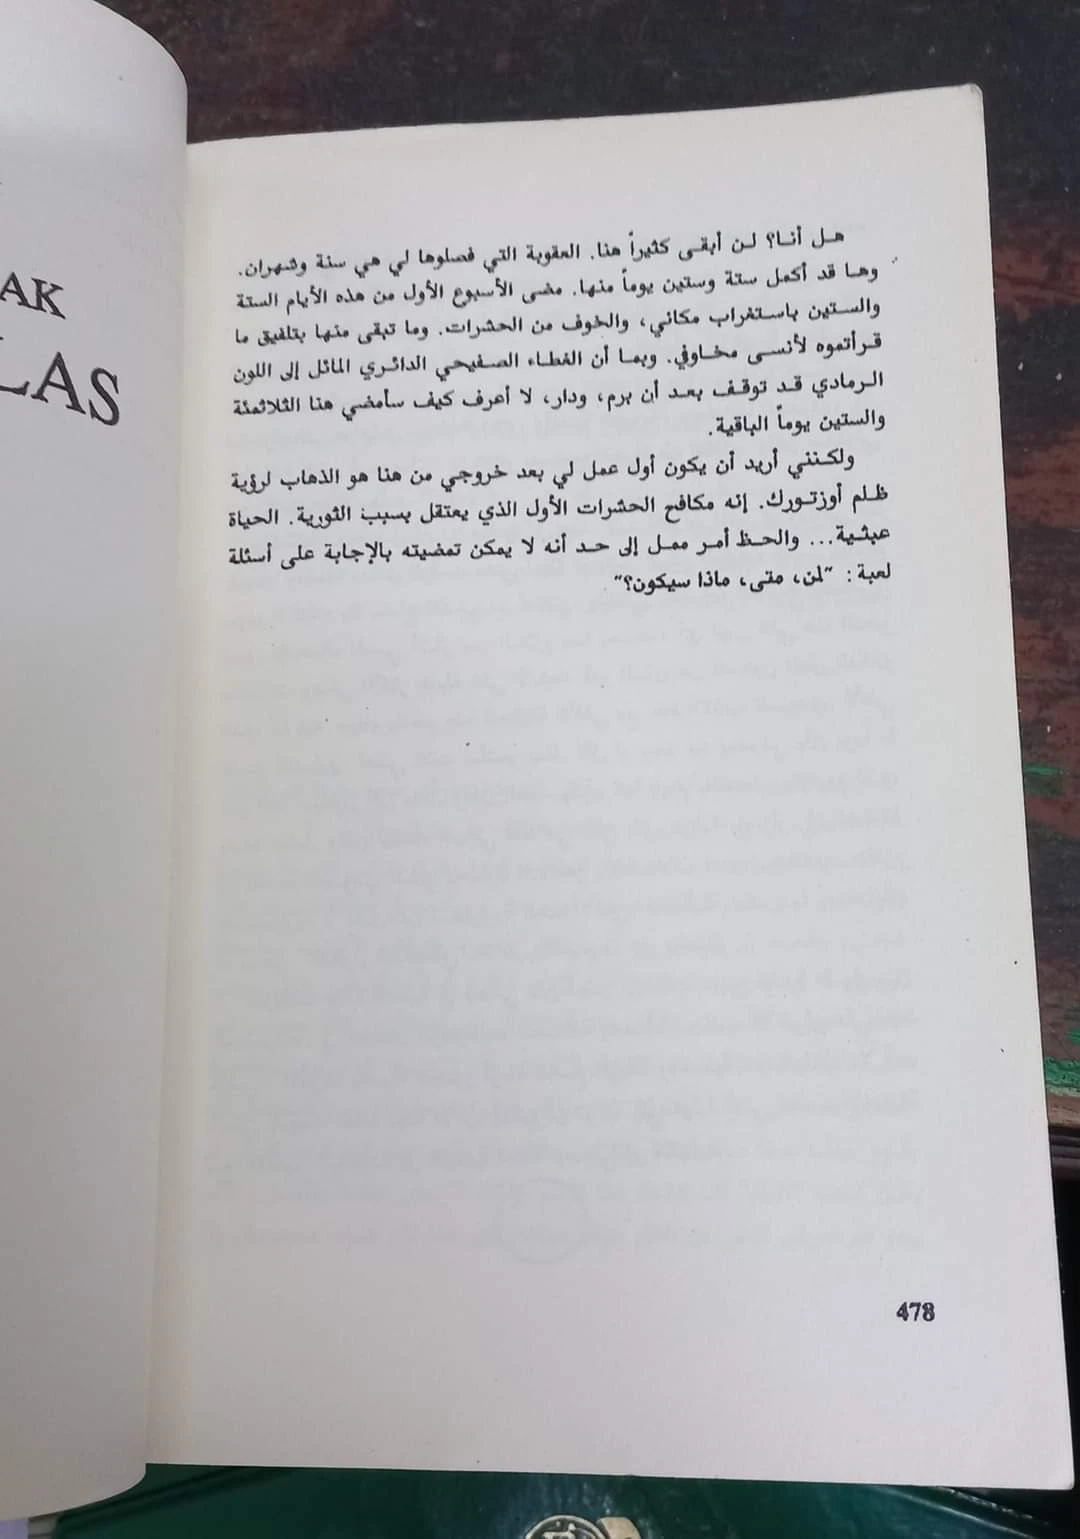 هل أنا؟ لن أبقى كثيراً هنا. العقوبة التي فصلوها لي هي سنة وشهران.
وها قد أكمل ستة وستين يوماً منها. مضى الأسبوع الأول من هذه الأيام الستة
والستين باستغراب مكاني، والخوف من الحشرات. وما تبقى منها بتلفيق ما
قرأتموه لأنسى مخاوفي. وبما أن الغطاء الصفيحي الدائري المائل إلى اللون
الرمادي قد توقف بعد أن برم، ودار، لا أعرف كيف سأمضي هنا الثلاثمئة
والستين يوماً الباقية.
ولكنني أريد أن يكون أول عمل لي بعد خروجي من هنا هو الذهاب لرؤية
ظلم أوزتورك. إنه مكافح الحشرات الأول الذي يعتقل بسبب الثورية. الحياة
عبثية... والحظ أمر ممل إلى حد أنه لا يمكن تمضيته بالإجابة على أسئلة
لعبة: "لمن، متى، ماذا سيكون؟"
478
AK
LAS